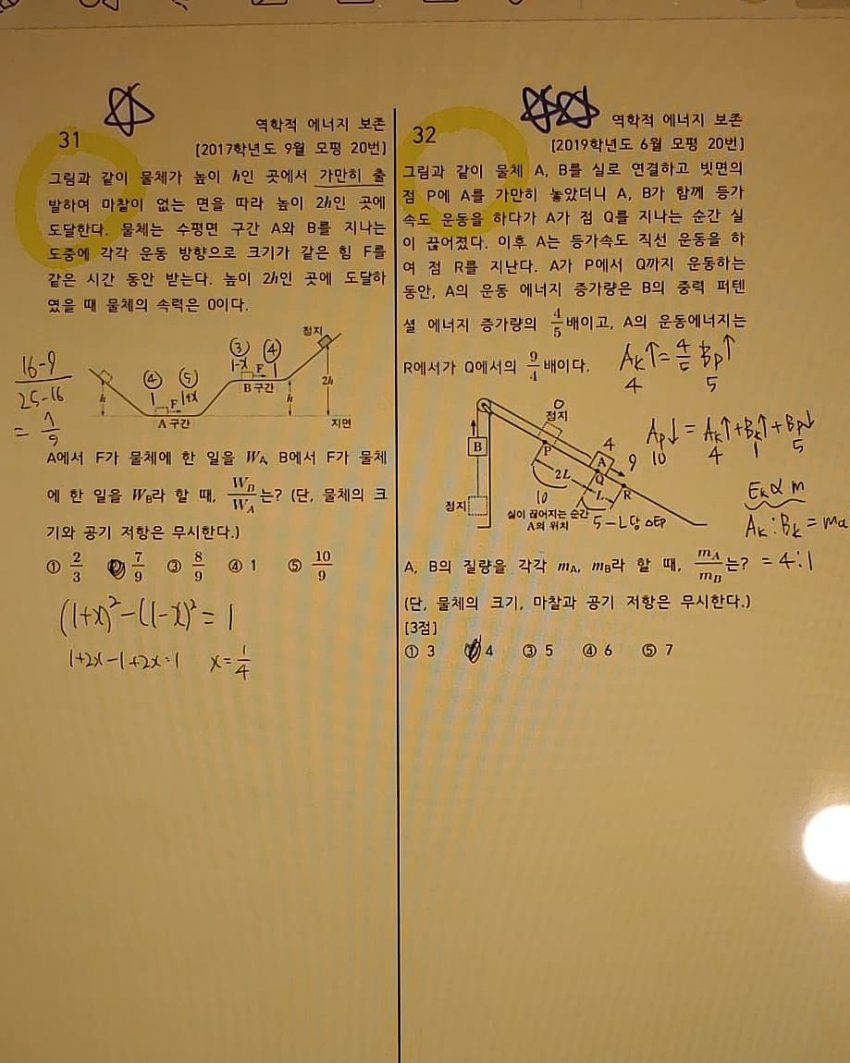 31
역학적 에너지 보존
[2017학년도 9월 모평 20번]
그림과 같이 물체가 높이 h인 곳에서 가만히 출
발하여 마찰이 없는 면을 따라 높이 2h인 곳에
도달한다. 물체는 수평면 구간 A와 B를 지나는
도중에 각각 운동 방향으로 크기가 같은 힘 F를
같은 시간 동안 받는다. 높이 2h인 곳에 도달하
였을 때 물체의 속력은 0이다.
16-9
25-16
= 7/9
정지
③ ④
1-x F 1
B 구간
h
2h
h
④ ⑤
1 F 1+x
A 구간
지면
A에서 F가 물체에 한 일을 W_A, B에서 F가 물체
에 한 일을 W_B라 할 때, W_B/W_A는? (단, 물체의 크
기와 공기 저항은 무시한다.)
① 2/3 ② 7/9 ③ 8/9 ④ 1 ⑤ 10/9
(1+x)²-(1-x)²=1
1+2x-1+2x=1 x=1/4
32
역학적 에너지 보존
[2019학년도 6월 모평 20번]
그림과 같이 물체 A, B를 실로 연결하고 빗면의
점 P에 A를 가만히 놓았더니 A, B가 함께 등가
속도 운동을 하다가 A가 점 Q를 지나는 순간 실
이 끊어졌다. 이후 A는 등가속도 직선 운동을 하
여 점 R를 지난다. A가 P에서 Q까지 운동하는
동안, A의 운동 에너지 증가량은 B의 중력 퍼텐
셜 에너지 증가량의 4/5배이고, A의 운동에너지는
R에서가 Q에서의 9/4배이다.
Ak↑=4/5 Bp↑
4 5
0
정지
B
P
4
A
9
Q
R
2L
L
10
정지
실이 끊어지는 순간
A의 위치
5-L당 ΔEp
Ap↓=Ak↑+Bk↑+Bp↓
10 4 1 5
Ek∝m
Ak:Bk=ma
=4:1
A, B의 질량을 각각 m_A, m_B라 할 때, m_A/m_B는?
(단, 물체의 크기, 마찰과 공기 저항은 무시한다.)
[3점]
① 3 ② 4 ③ 5 ④ 6 ⑤ 7